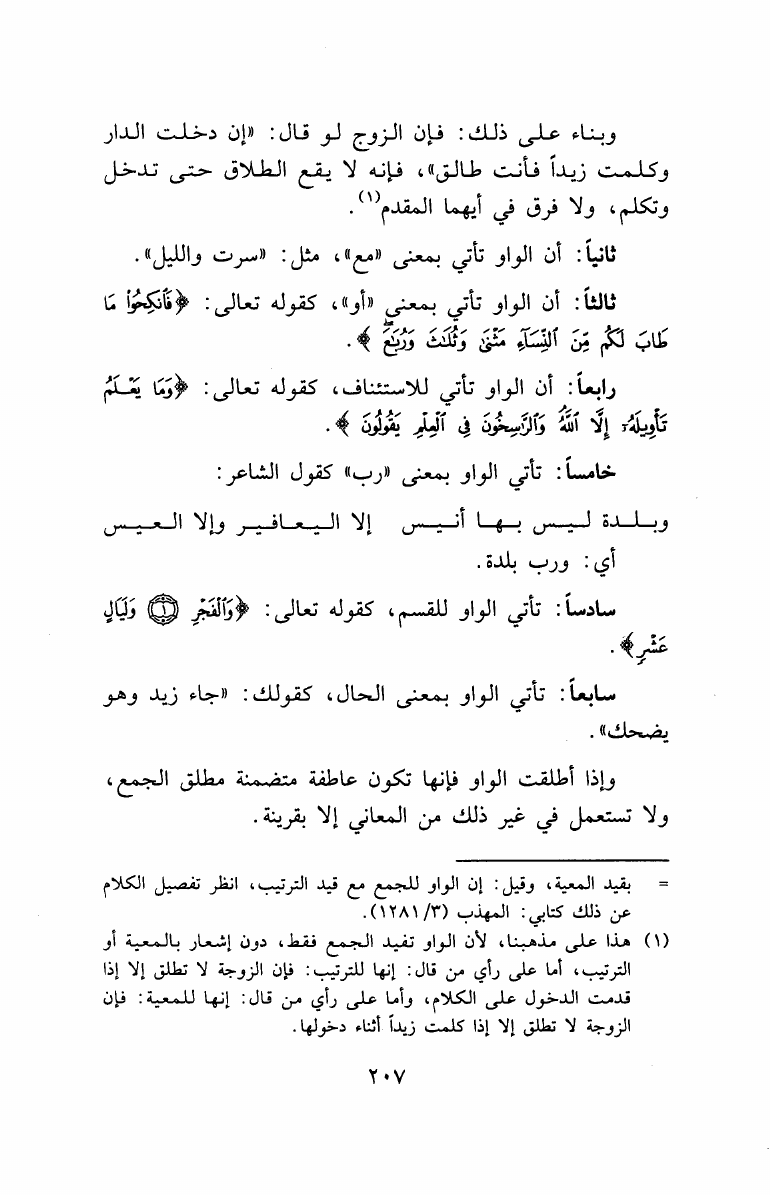 وبناء على ذلك: فإن الزوج لو قال: «إن دخلت الدار
وكلمت زيداً فأنت طالق»، فإنه لا يقع الطلاق حتى تدخل
وتكلم، ولا فرق في أيهما المقدم(١).
ثانياً: أن الواو تأتي بمعنى «مع»، مثل: «سرت والليل».
ثالثاً: أن الواو تأتي بمعنى «أو»، كقوله تعالى: ﴿فَٱنكِحُوا۟ مَا
طَابَ لَكُم مِّنَ ٱلنِّسَآءِ مَثْنَىٰ وَثُلَٰثَ وَرُبَٰعَۖ﴾.
رابعاً: أن الواو تأتي للاستئناف، كقوله تعالى: ﴿وَمَا يَعْلَمُ
تَأْوِيلَهُۥٓ إِلَّا ٱللَّهُۗ وَٱلرَّٰسِخُونَ فِى ٱلْعِلْمِ يَقُولُونَ﴾.
خامساً: تأتي الواو بمعنى «رب» كقول الشاعر:
وبلدة ليس بها أنيس إلا اليعافير وإلا العيس
أي: ورب بلدة.
سادساً: تأتي الواو للقسم، كقوله تعالى: ﴿وَٱلْفَجْرِ ١ وَلَيَالٍ
عَشْرٍ﴾.
سابعاً: تأتي الواو بمعنى الحال، كقولك: «جاء زيد وهو
يضحك».
وإذا أطلقت الواو فإنها تكون عاطفة متضمنة مطلق الجمع،
ولا تستعمل في غير ذلك من المعاني إلا بقرينة.
= بقيد المعية، وقيل: إن الواو للجمع مع قيد الترتيب، انظر تفصيل الكلام
عن ذلك كتابي: المهذب (٣/ ١٢٨١).
(١) هذا على مذهبنا، لأن الواو تفيد الجمع فقط، دون إشعار بالمعية أو
الترتيب، أما على رأي من قال: إنها للترتيب: فإن الزوجة لا تطلق إلا إذا
قدمت الدخول على الكلام، وأما على رأي من قال: إنها للمعية: فإن
الزوجة لا تطلق إلا إذا كلمت زيداً أثناء دخولها.
٢٠٧